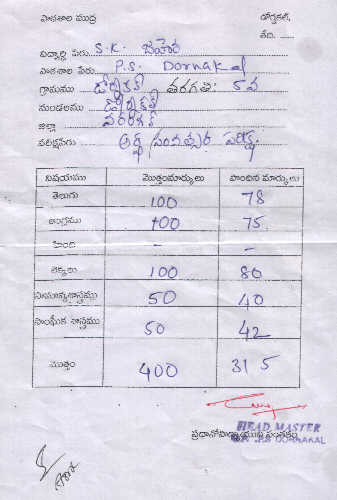 పాఠశాల ముద్ర డోర్నకల్,
తేది.
విద్యార్థి పేరు S.K.
పాఠశాల పేరు P.S. Dornakal
గ్రామము డోర్నకల్ తరగతి: 5వ
మండలము డోర్నకల్
జిల్లా వరంగల్
పరీక్ష అర్ధ సంవత్సర పరీక్ష
విషయము మొత్తంమార్కులు పొందిన మార్కులు
తెలుగు 100 78
ఆంగ్లము 100 75
హింది - -
లెక్కలు 100 80
సామాన్యశాస్త్రము 50 40
సాంఘీక శాస్త్రము 50 42
మొత్తం 400 315
HEAD MASTER
P.S DORNAKAL
ప్రధానోపాధ్యాయుని సంతకం